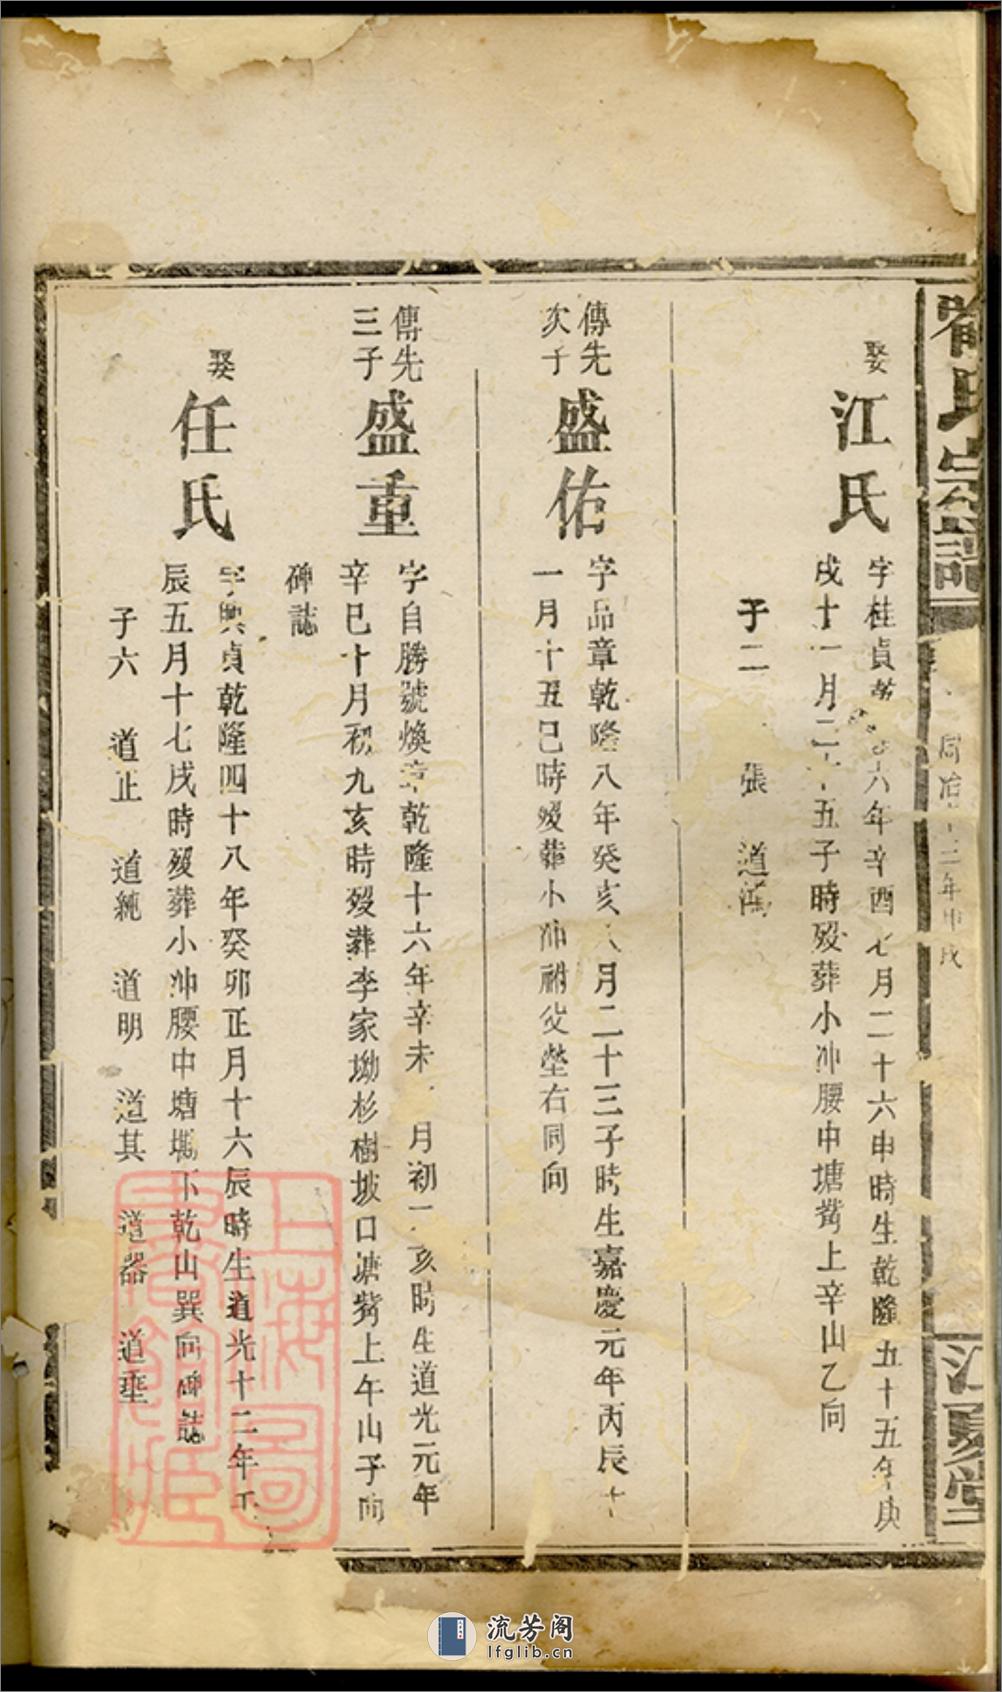 氏宗譜
同治 二年甲戌
江夏堂
娶
江氏
字桂貞乾 六年辛酉七月二十六申時生乾隆五十五年庚
戌十一月二十五子時歿葬小冲腰中塘觜上辛山乙向
子二 張 道漢
傳先
次子
盛佑
字品章乾隆八年癸亥八月二十三子時生嘉慶元年丙辰十
一月十五巳時歿葬小冲祔父塋右同向
傳先
三子
盛重
字自勝號煥章乾隆十六年辛未 月初一亥時生道光元年
辛巳十月初九亥時歿葬李家坳杉樹坡口塘觜上午山子向
碑誌
娶
任氏
字興貞乾隆四十八年癸卯正月十六辰時生道光十二年壬
辰五月十七戌時歿葬小冲腰中塘塆下乾山巽向碑誌
子六 道止 道純 道明 道其 道器 道垂
上海圖書館藏
流芳阁
lfglib.cn